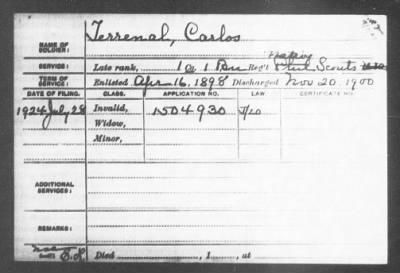 NAME OF SOLDIER: Terrenal, Carlos
SERVICE: Late rank, 1 Bn Reg't Native Phil Scouts
TERM OF SERVICE: Enlisted Apr 16, 1898 Discharged Nov 20 1900
DATE OF FILING. CLASS. APPLICATION NO. LAW CERTIFICATE NO.
1924 July 28 Invalid, 1504930
Widow,
Minor,
ADDITIONAL SERVICES:
REMARKS:
Died , 1 , at